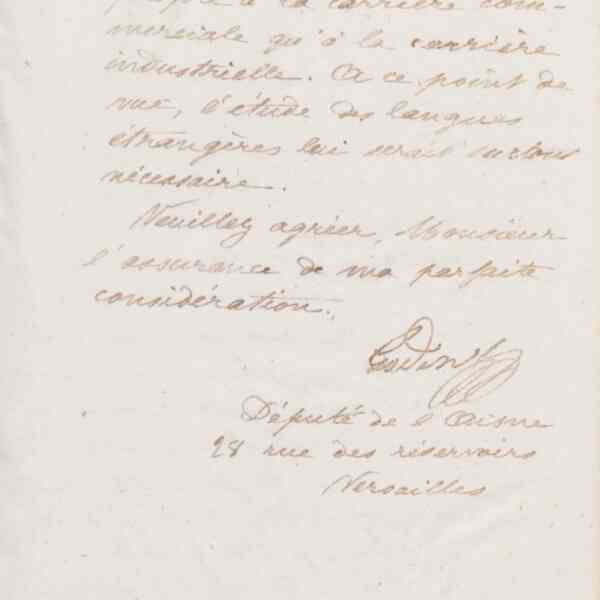 à la carrière com-
merciale qu'à la carrière
industrielle. A ce point de
vue, l'étude des langues
étrangères lui serait surtout
nécessaire.
Veuillez agréer, Monsieur
l'assurance de ma parfaite
considération.
Godin
Député de l'Aisne
28 rue des réservoirs
Versailles